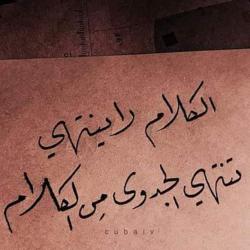 الكلام لا ينتهي
تنتهي الجدوى من الكلام
cubaiv